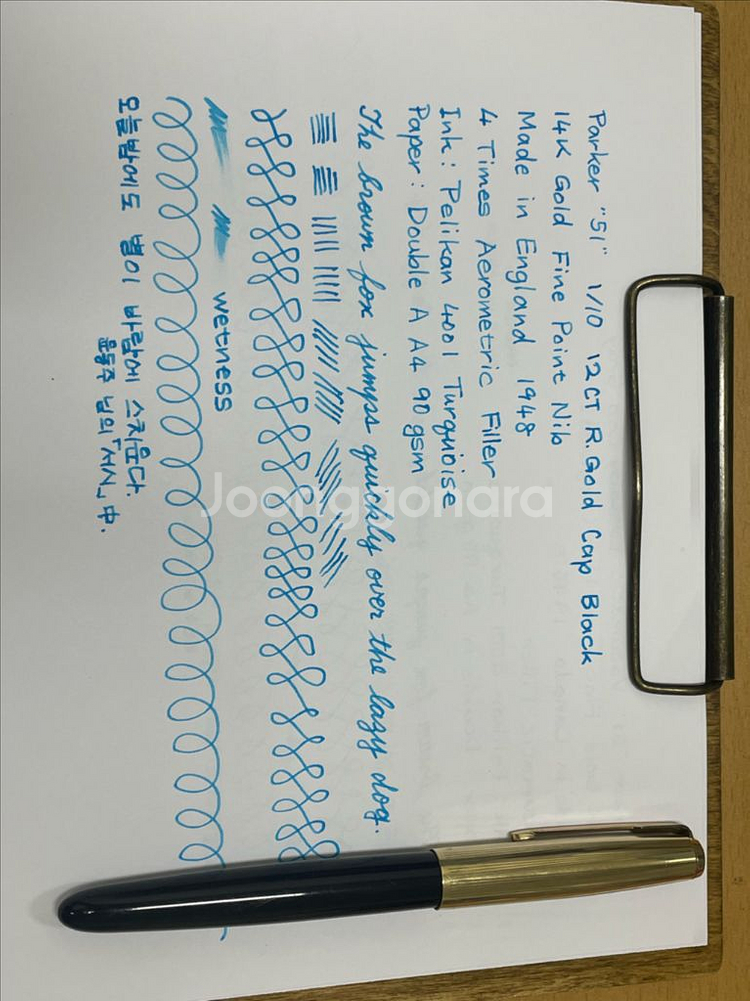 Parker "51" 1/10 12CT R.Gold Cap Black
14K Gold Fine Point Nib
Made in England 1948
4 Times Aerometric Filler
Ink: Pelikan 4001 Turquoise
Paper: Double A A4 90 gsm
The brown fox jumps quickly over the lazy dog.
wetness
오늘밤에도 별이 바람에 스치운다.
윤동주 님의 「서시」 中.
Joonggonara